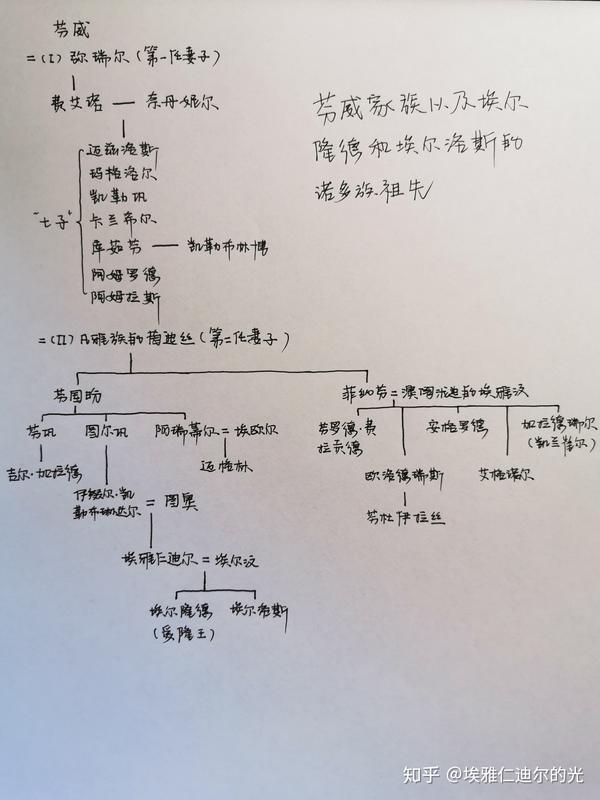 芬威
=(I)弥瑞尔(第一任妻子)
费艾诺 — 奈丹妮尔
芬威家族以及埃尔
隆德和埃尔洛斯的
诺多族祖先
"七子"
迈兹洛斯
玛格洛尔
凯勒巩
卡兰希尔
库茹芬 — 凯勒布林博
阿姆罗德
阿姆拉斯
=(II)凡雅族的茵迪丝(第二任妻子)
芬国昐 菲纳芬=澳阔泷迪的埃雅汶
芬巩 图尔巩 阿瑞蒂尔=埃欧尔 芬罗德·费拉贡德 安格罗德 加拉德瑞尔(凯兰崔尔)
吉尔·加拉德 伊缀尔·凯勒布琳达尔=图奥 迈格林 欧洛德瑞斯 艾格诺尔
芬杜伊拉丝
埃雅仁迪尔=埃尔汶
埃尔隆德 埃尔洛斯
(爱隆王)
知乎 @埃雅仁迪尔的光